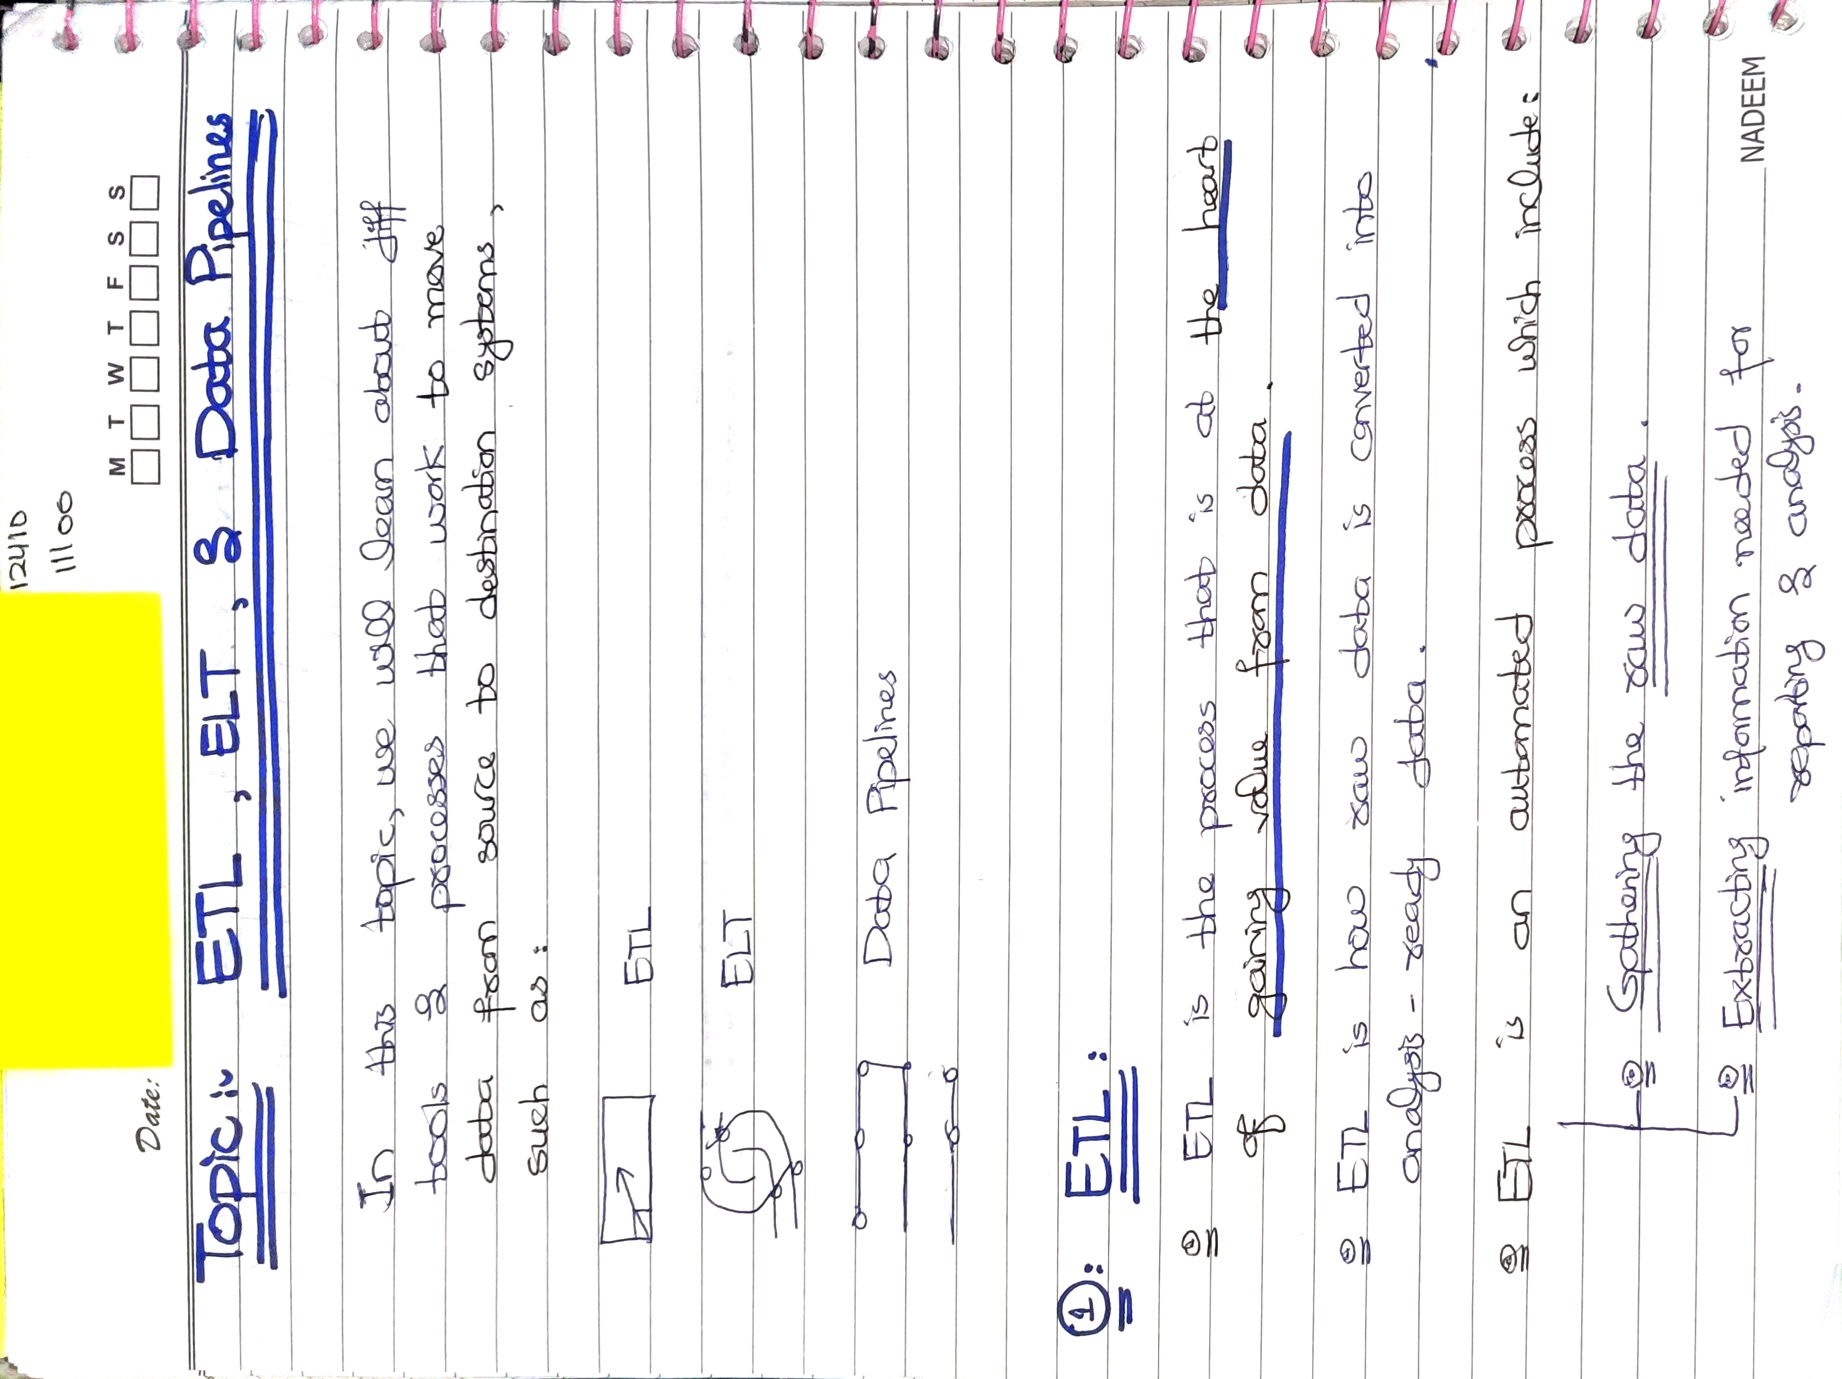 12410
11100
M T W T F S S
Date:
Topic:- ETL, ELT, & Data Pipelines
In this topic, we will lean about diff
tools & processes that work to move
data from source to destination systems,
such as:
ETL
ELT
Data Pipelines
①: ETL:
ETL is the process that is at the heart
of gaining value from data.
ETL is how raw data is converted into
analysis-ready data.
ETL is an automated process which include:
Gathering the raw data.
Extracting information needed for
reporting & analysis.
NADEEM